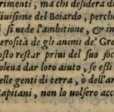 rimenti, ma chi desidera
iuissime del Boiardo, perch
si uede l'ambitione, & in
erosità de gli animi de' Gre
osto restar priui del suo p
oleua dar loro aiuto, se esti
elle genti di terra, ò dell'ar
apitani, non lo uolsero acc